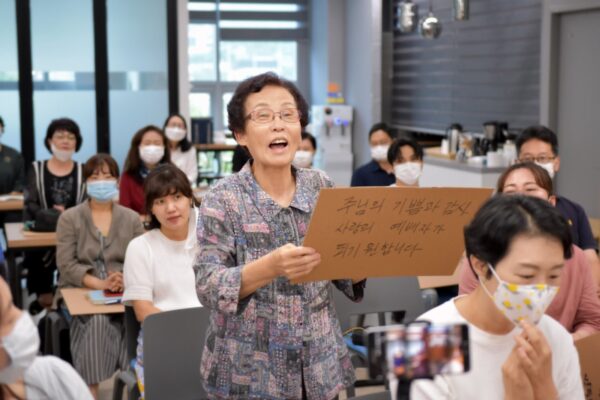 주님의 기쁨과 감사
사랑의 예배자가
되기 원합니다